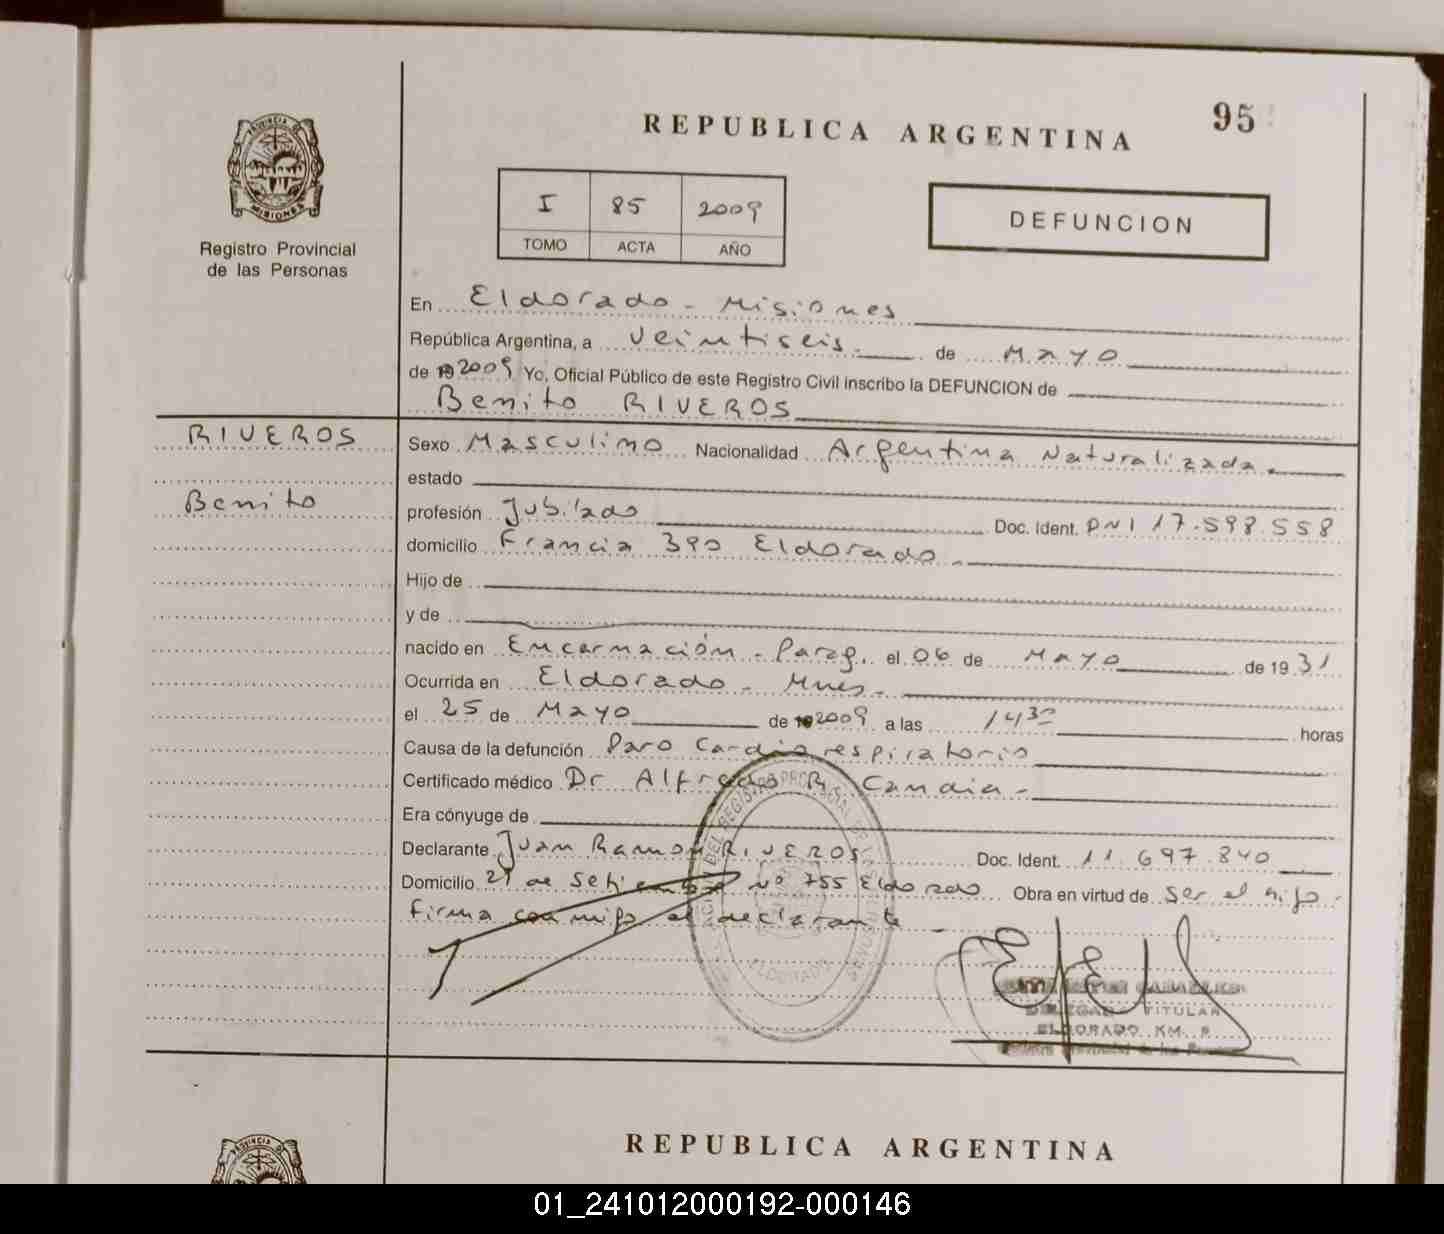 REPUBLICA ARGENTINA
95
PROVINCIA D
MISIONES
Registro Provincial
de las Personas
I 85 2009
TOMO ACTA AÑO
DEFUNCION
En Eldorado - Misiones
República Argentina, a veintiseis de Mayo
de 2009 Yo, Oficial Público de este Registro Civil inscribo la DEFUNCION de
Benito RIVEROS
RIVEROS
Benito
Sexo Masculino Nacionalidad Argentina Naturalizada
estado
profesión Jubilado Doc. Ident. DNI 17.598.558
domicilio Francia 390 Eldorado
Hijo de
y de
nacido en Encarnación - Parag. el 06 de Mayo de 1931
Ocurrida en Eldorado - Mnes -
el 25 de Mayo de 2009 a las 14 30 horas
Causa de la defunción Paro Cardiorespiratorio
Certificado médico Dr Alfredo R. Candia -
Era cónyuge de
Declarante Juan Ramon RIVEROS Doc. Ident. 11.697.840
Domicilio 21 de Setiembre Nº 755 Eldorado Obra en virtud de ser el hijo -
firma conmigo el declarante -
ELDORADO
TITULAR
ELDORADO KM. 9
REPUBLICA ARGENTINA
PROVINCIA
01_241012000192-000146